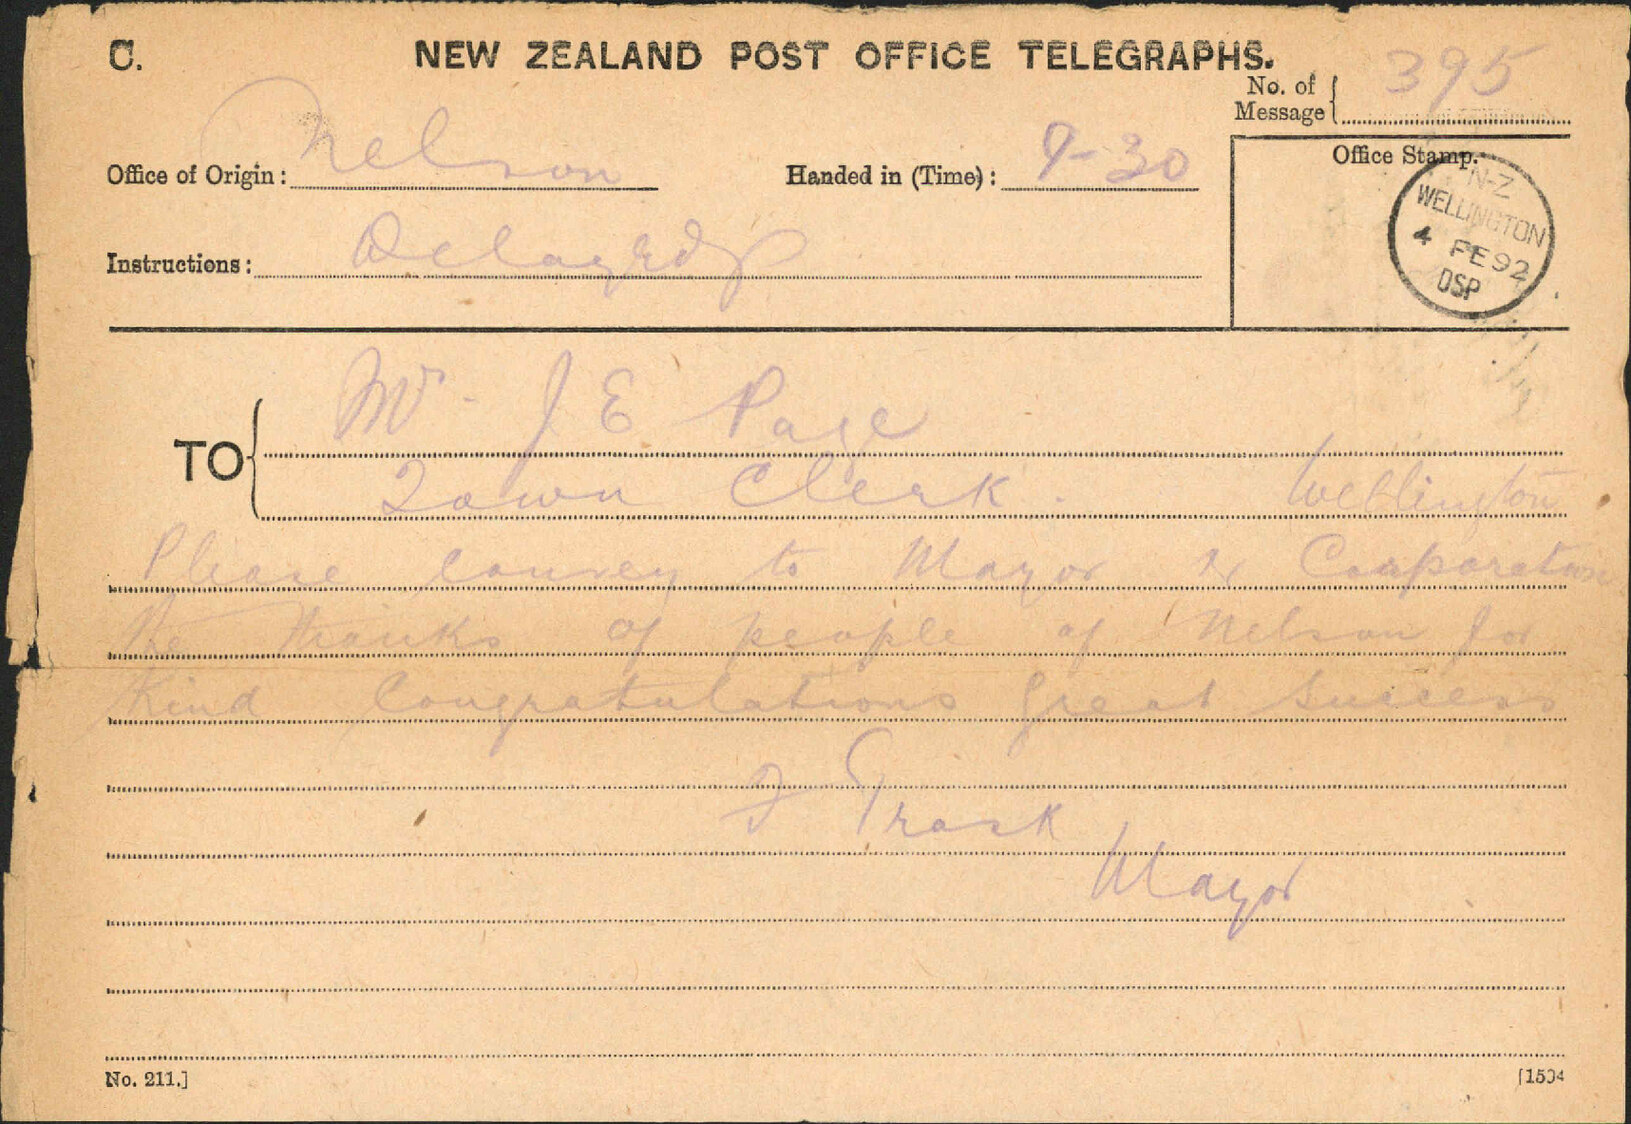 C.
NEW ZEALAND POST OFFICE TELEGRAPHS.
No. of Message 395
Office of Origin: Nelson
Handed in (Time): 9-30
Office Stamp.
N-Z
WELLINGTON
4 FE 92
DSP
Instructions: Delayed
TO
Mr. J E Page
Town Clerk. Wellington
Please convey to Mayor & Corporation
the thanks of people of Nelson for
Kind Congratulations great success
F Trask
Mayor
No. 211.]
[1504